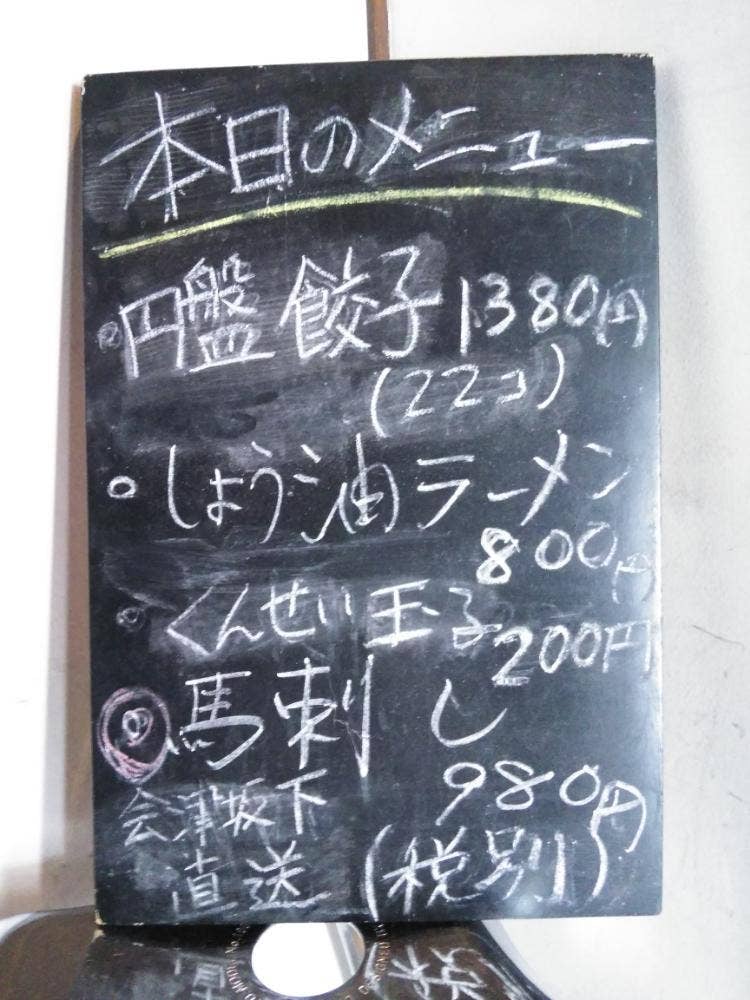 本日のメニュー
円盤餃子1380円
(22コ)
しょう油ラーメン
800円
くんせい玉子
200円
馬刺し
980円
会津坂下
直送 (税別)